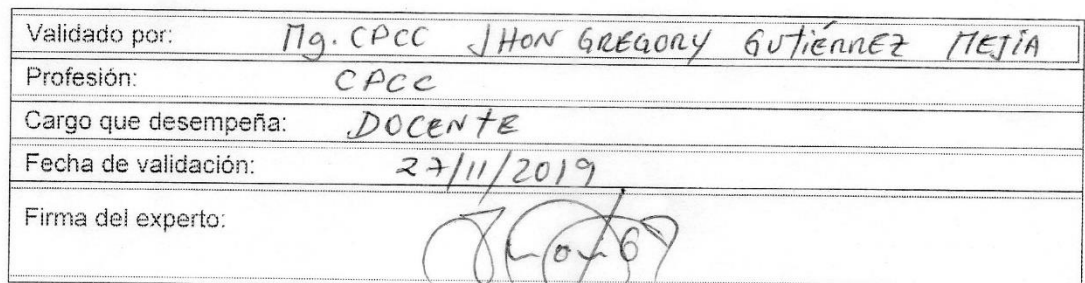 Validado por: Mg. CPCC JHON GREGORY GUTIÉRREZ MEJÍA
Profesión: CPCC
Cargo que desempeña: DOCENTE
Fecha de validación: 27/11/2019
Firma del experto: